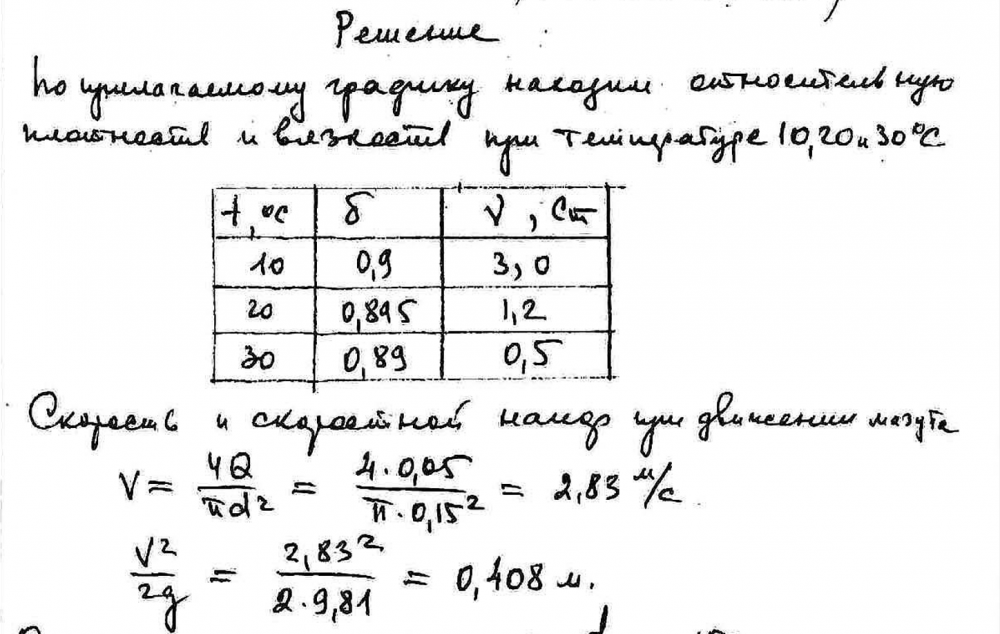 Решение
По прилагаемому графику находим относительную
плотность и вязкость при температуре 10,20 и 30°С
t,°С δ ν, Ст
10 0,9 3,0
20 0,895 1,2
30 0,89 0,5
Скорость и скоростной напор при движении мазута
V = 4Q/πd² = 4·0,05/π·0,15² = 2,83 м/с
V²/2g = 2,83²/2·9,81 = 0,408 м.